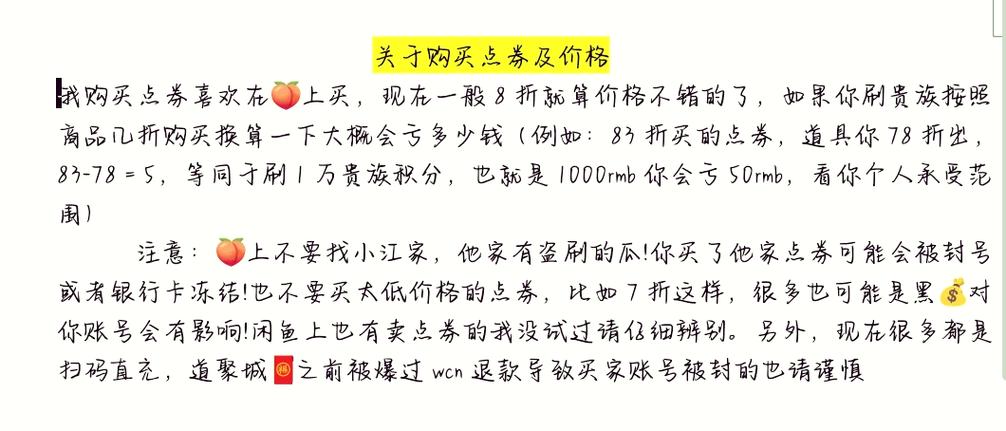 关于购买点券及价格
我购买点券喜欢在🍑上买，现在一般8折就算价格不错的了，如果你刷贵族按照
商品几折购买换算一下大概会亏多少钱（例如：83折买的点券，道具你78折出，
83-78=5，等同于刷1万贵族积分，也就是1000rmb你会亏50rmb，看你个人承受范
围）
注意：🍑上不要找小江家，他家有盗刷的瓜!你买了他家点券可能会被封号
或者银行卡冻结!也不要买太低价格的点券，比如7折这样，很多也可能是黑💰对
你账号会有影响!闲鱼上也有卖点券的我没试过请仔细辨别。另外，现在很多都是
扫码直充，道聚城🧧之前被爆过wcn退款导致买家账号被封的也请谨慎